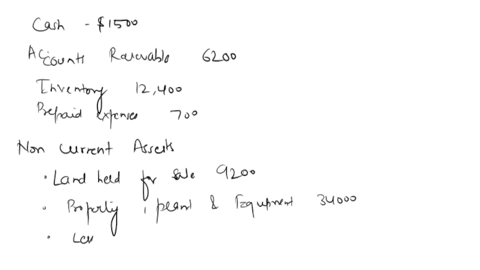 Cash - $1500
Accounts Receivable 6200
Inventory 12,400
Prepaid expenses 700
Non Current Assets
• Land held for sale 9200
• Property, plant & Equipment 34000
• Lan